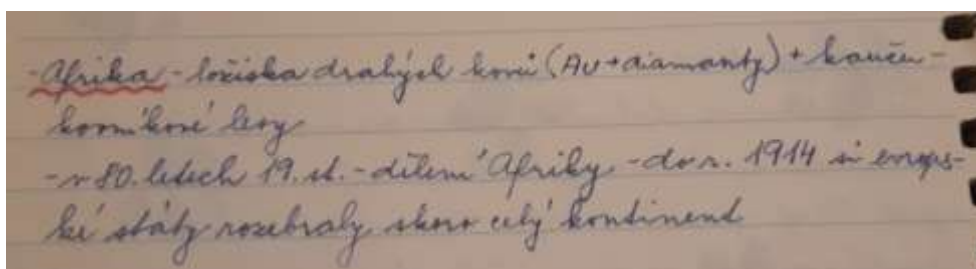 -Afrika - ložiska drahých kovů (Au+diamanty) + kauču-
kovníkové lesy
- v 80. letech 19. st. - dělení Afriky - do r. 1914 si evrops-
ké státy rozebraly skoro celý kontinent